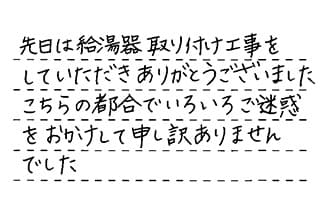 先日は給湯器取り付け工事を
していただきありがとうございました
こちらの都合でいろいろご迷惑
をおかけして申し訳ありません
でした